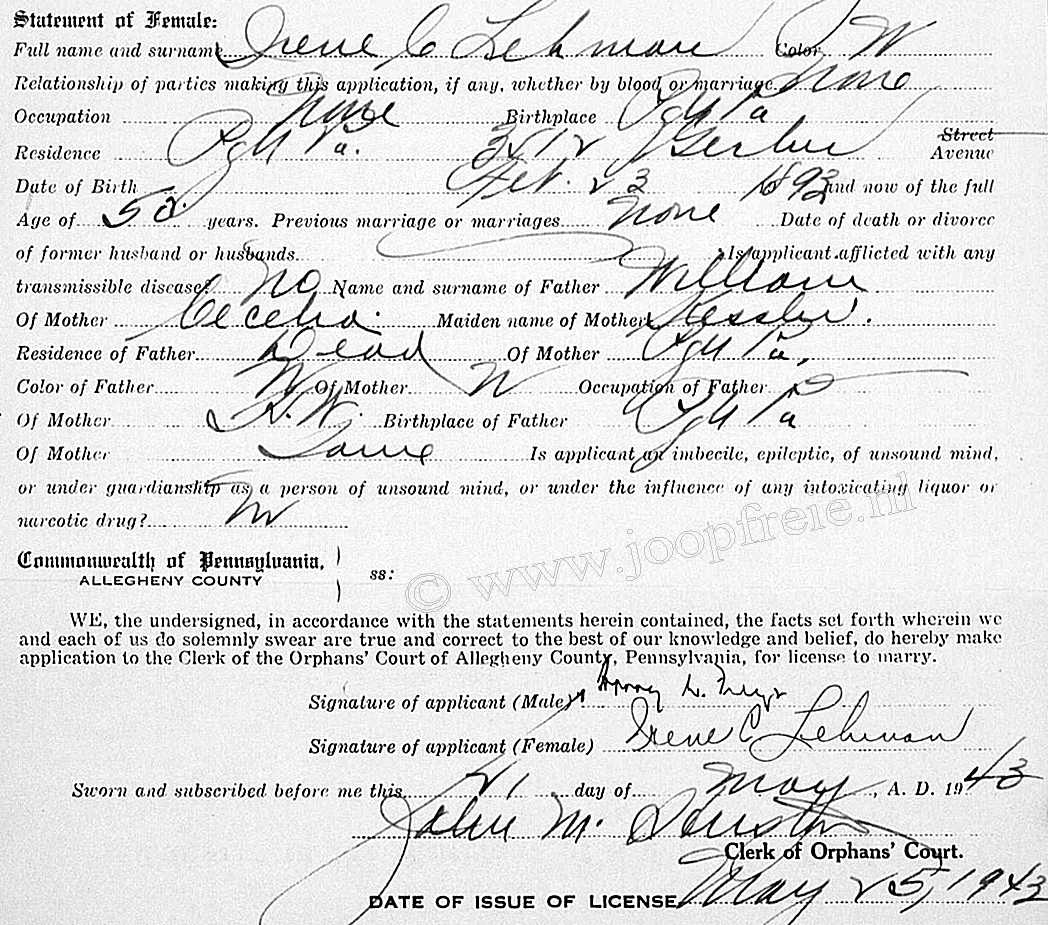 Statement of Female:
Full name and surname Irene C Lehman Color W
Relationship of parties making this application, if any, whether by blood or marriage None
Occupation None Birthplace Pgh Pa
Residence Pgh Pa. 3412 Gerber Street Avenue
Date of Birth Feb. 23 1893 and now of the full
Age of 50 years. Previous marriage or marriages None Date of death or divorce
of former husband or husbands Is applicant afflicted with any
transmissible disease? No Name and surname of Father William
Of Mother Cecelia. Maiden name of Mother Kessler.
Residence of Father Dead Of Mother Pgh Pa,
Color of Father W Of Mother W Occupation of Father
Of Mother H.W. Birthplace of Father Pgh Pa
Of Mother Same Is applicant an imbecile, epileptic, of unsound mind,
or under guardianship as a person of unsound mind, or under the influence of any intoxicating liquor or
narcotic drug? No
© www.joopfreie.nl
Commonwealth of Pennsylvania,
ALLEGHENY COUNTY
ss:
WE, the undersigned, in accordance with the statements herein contained, the facts set forth wherein we
and each of us do solemnly swear are true and correct to the best of our knowledge and belief, do hereby make
application to the Clerk of the Orphans' Court of Allegheny County, Pennsylvania, for license to marry.
Signature of applicant (Male)
Signature of applicant (Female) Irene C Lehman
Sworn and subscribed before me this 21 day of May, A. D. 1943
John M.
Clerk of Orphans' Court.
DATE OF ISSUE OF LICENSE May 25, 1943